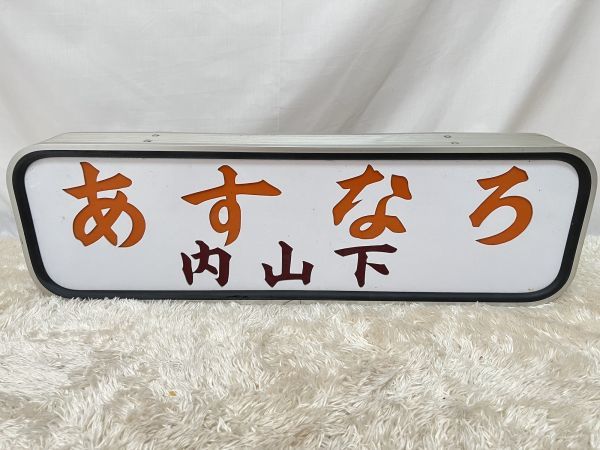 あすなろ
内山下